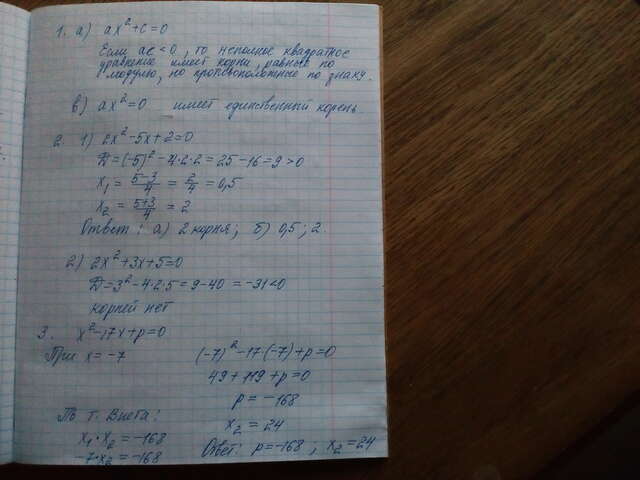 1. а) ax² + c = 0
Если ac < 0, то неполное квадратное
уравнение имеет корни, равные по
модулю, но противоположные по знаку.
в) ax² = 0 имеет единственный корень.
2. 1) 2x² - 5x + 2 = 0
D = (-5)² - 4·2·2 = 25 - 16 = 9 > 0
x₁ = (5-3)/4 = 2/4 = 0,5
x₂ = (5+3)/4 = 2
Ответ: а) 2 корня; б) 0,5; 2.
2) 2x² + 3x + 5 = 0
D = 3² - 4·2·5 = 9 - 40 = -31 < 0
корней нет
3. x² - 17x + p = 0
При x = -7 (-7)² - 17·(-7) + p = 0
49 + 119 + p = 0
p = -168
По т. Виета: x₂ = 24
x₁·x₂ = -168 Ответ: p = -168; x₂ = 24
-7·x₂ = -168